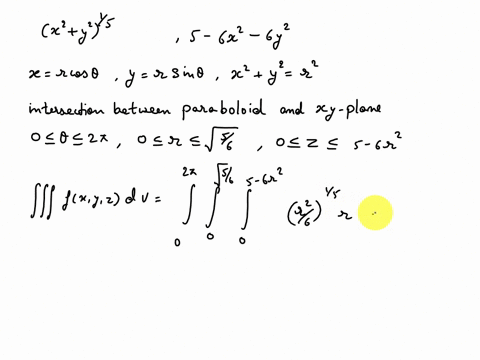 (x²+y²)^1/5 , 5-6x²-6y²
x=rcosθ , y=rsinθ , x²+y²=r²
intersection between paraboloid and xy-plane
0≤θ≤2π , 0≤r≤√5/6 , 0≤z≤ 5-6r²
∭ f(x,y,z) dV = ∫₀^2π ∫₀^√5/6 ∫₀^5-6r² (r²/6)^1/5 r